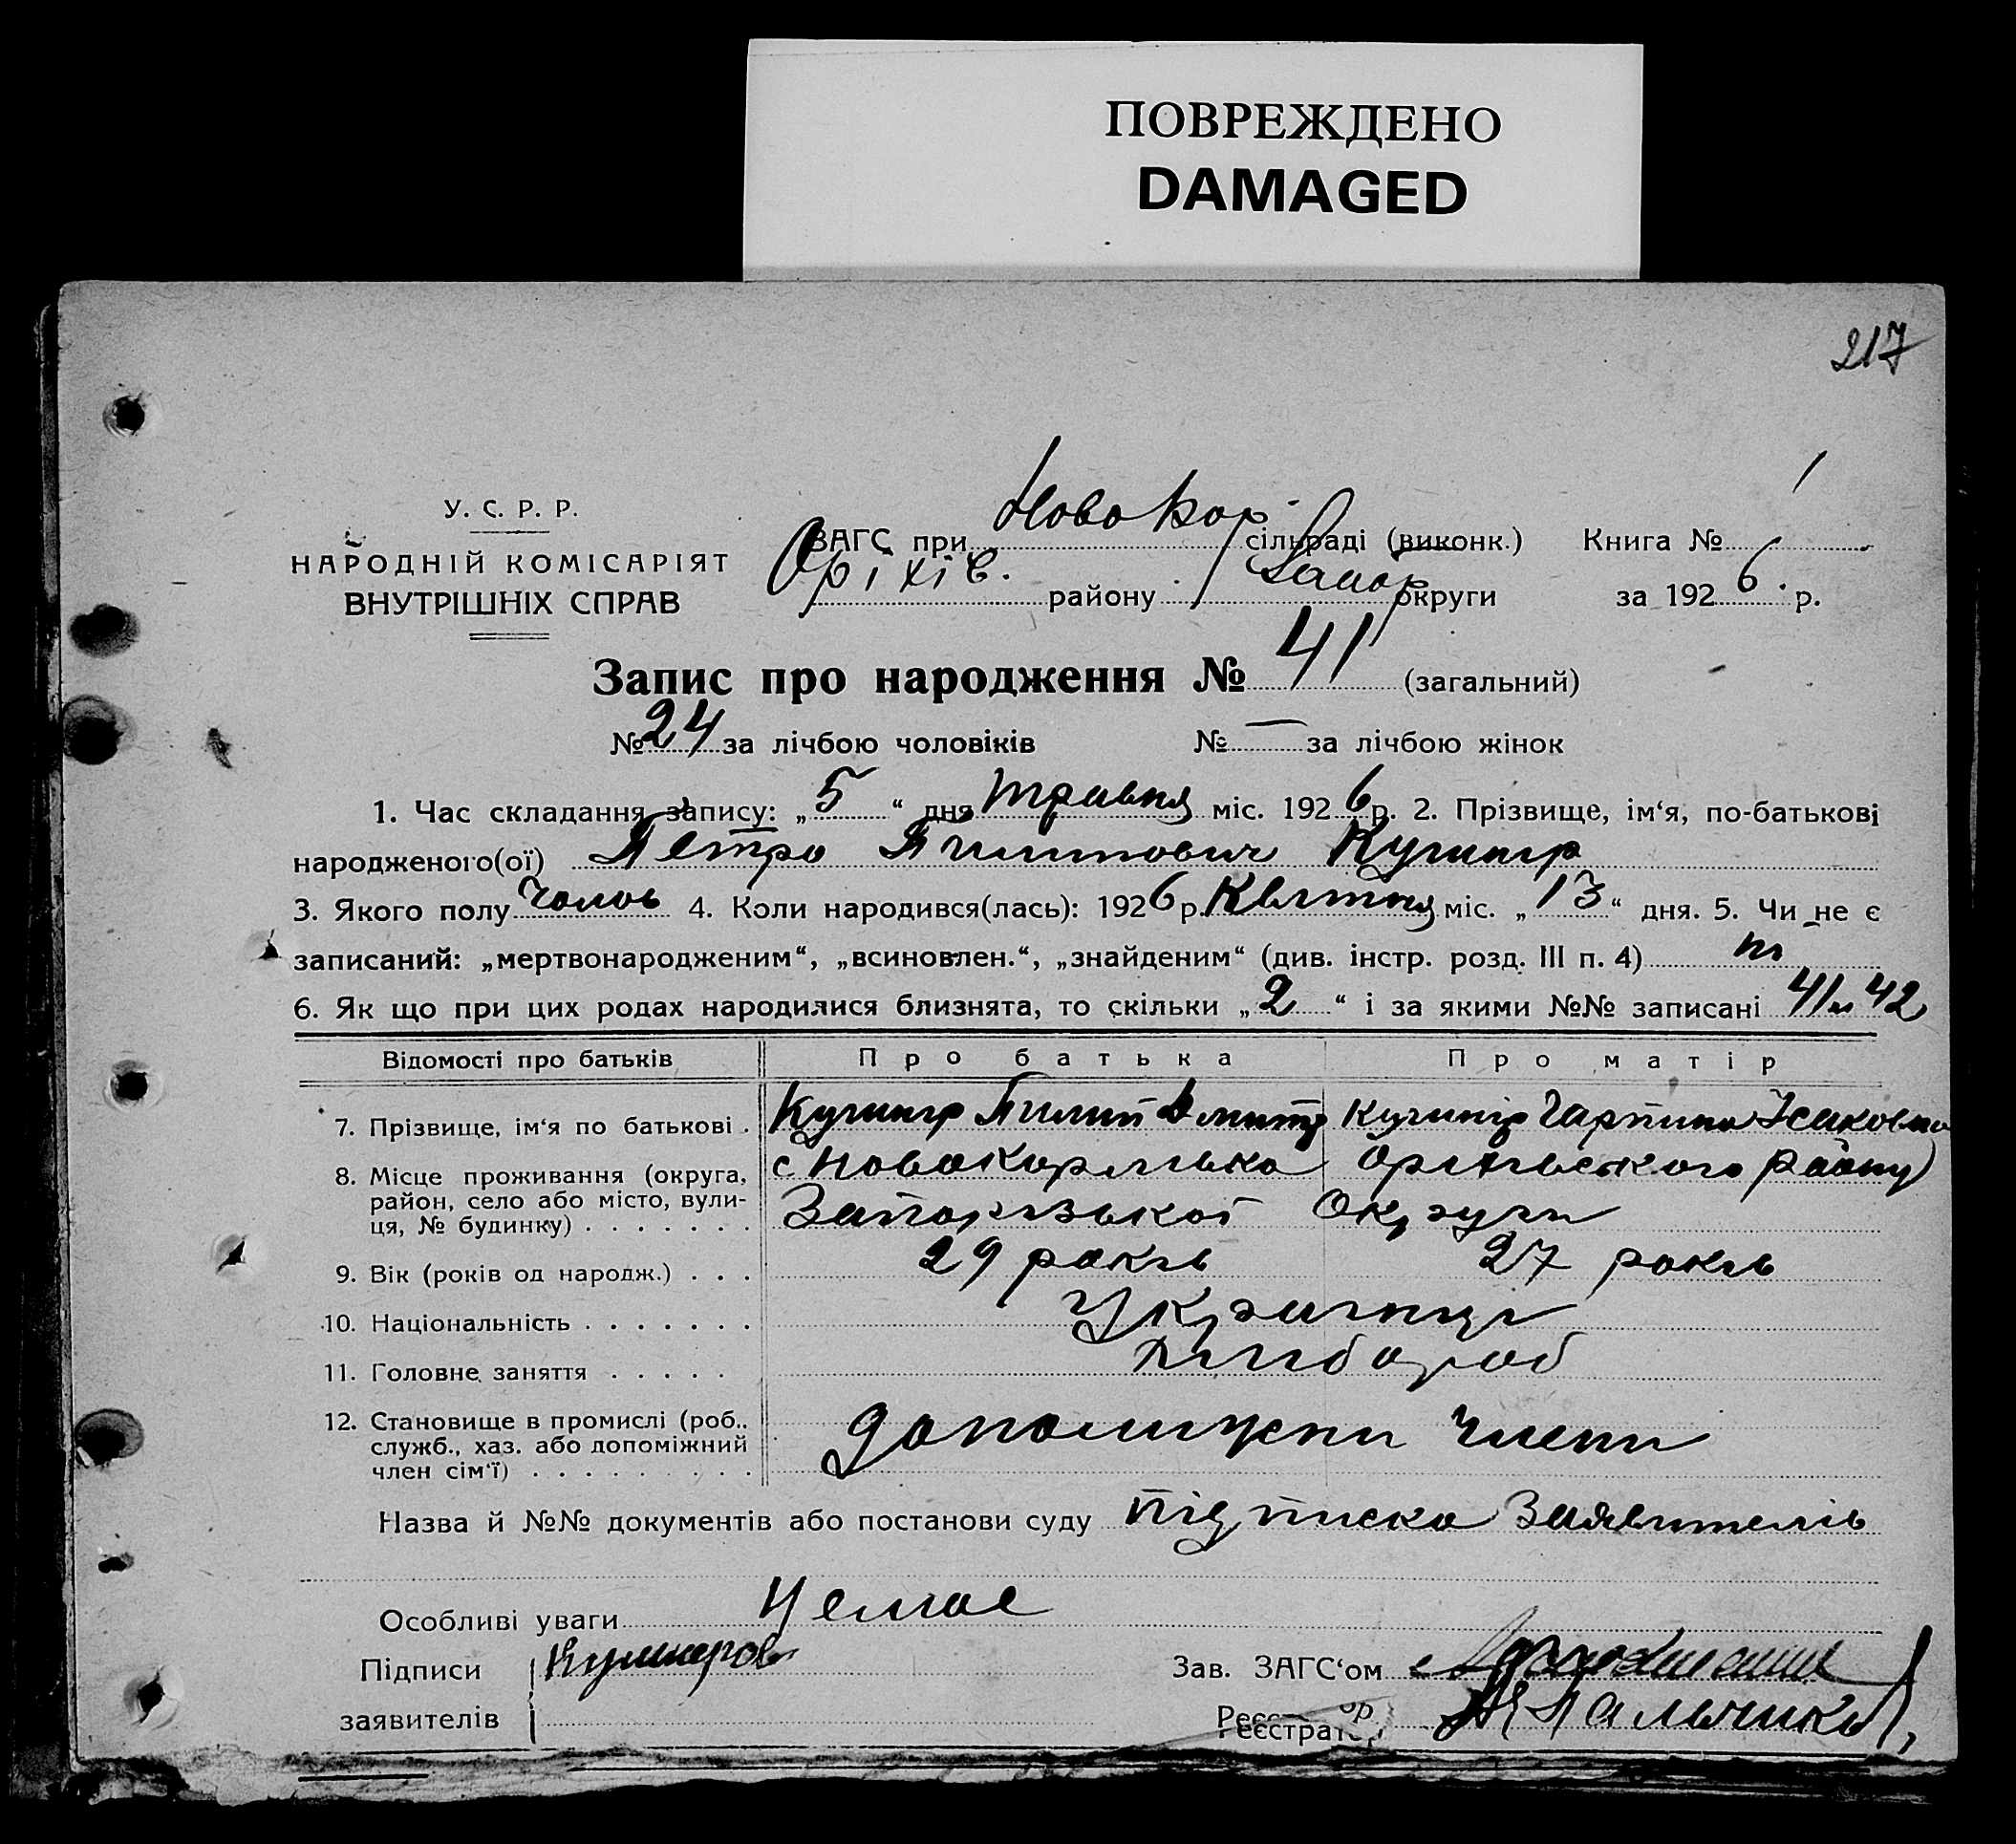 ПОВРЕЖДЕНО
DAMAGED
217
У. С. Р. Р.
НАРОДНІЙ КОМІСАРІЯТ
ВНУТРІШНІХ СПРАВ
ЗАГС при Новокар. сільраді (виконк.) Книга №
Оріхів. району Запор округи за 1926. р.
Запис про народження № 41 (загальний)
№ 24 за лічбою чоловіків № — за лічбою жінок
1. Час складання запису: „5“ дня травня міс. 1926 р. 2. Прізвище, ім‘я, по-батькові
народженого(ої) Петро Пилипович
3. Якого полу чолов 4. Коли народився(лась): 1926 р. Квітня міс. „13“ дня. 5. Чи не є
записаний: „мертвонародженим“, „всиновлен.“, „знайденим“ (див. інстр. розд. III п. 4)
6. Як що при цих родах народилися близнята, то скільки „2“ і за якими №№ записані 41 и 42
Відомості про батьків Про батька Про матір
7. Прізвище, ім‘я по батькові . Пилип Дмитр Кучипір Гарпина Исаковна
8. Місце проживання (округа, район, село або місто, вулиця, № будинку) . . . . . . . с Оріхівського району
Запорізької Округи
9. Вік (років од народж.) . . . 29 років 27 років
10. Національність . . . . . . . Українці
11. Головне заняття . . . . . Хлібороб
12. Становище в промислі (роб., служб., хаз. або допоміжний член сім‘ї) . . . . . . . . . допоміжни члени
Назва й №№ документів або постанови суду підписка заявителів
Особливі уваги Немає
Підписи
заявителів
Зав. ЗАГС‘ом
Реєстратор